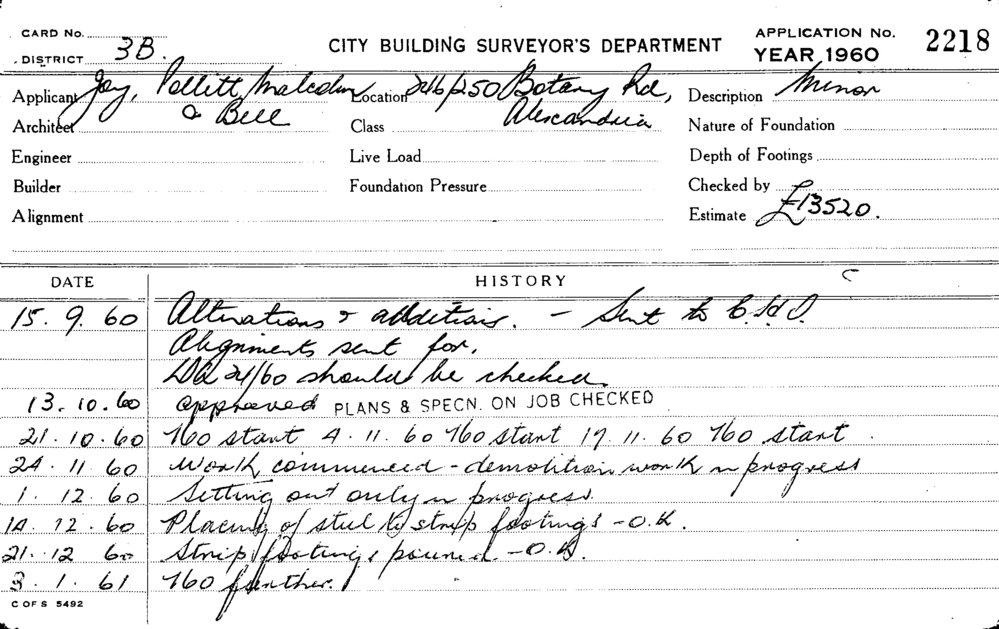 CARD No.
DISTRICT 3B.
CITY BUILDING SURVEYOR'S DEPARTMENT
APPLICATION No. 2218
YEAR 1960
Applicant Joy, Pollitt, Malcolm & Bell
Location 246/250 Botany Rd, Alexandria
Description Minor
Architect
Class
Nature of Foundation
Engineer
Live Load
Depth of Footings
Builder
Foundation Pressure
Checked by
Alignment
Estimate £13520.
DATE HISTORY
15. 9. 60 Alterations & additions. - Sent to C.H.O.
Alignments sent for.
DA 24/60 should be checked.
13.10.60 approved PLANS & SPECN. ON JOB CHECKED
21.10.60 No start 4.11.60 No start 17.11.60 No start.
24.11.60 Work commenced - demolition work in progress
1.12.60 Setting out only in progress.
14.12.60 Placing of steel to strip footings - O.K.
21.12 60 Strip footings poured - O.K.
3.1.61 No further.
C OF S 5492